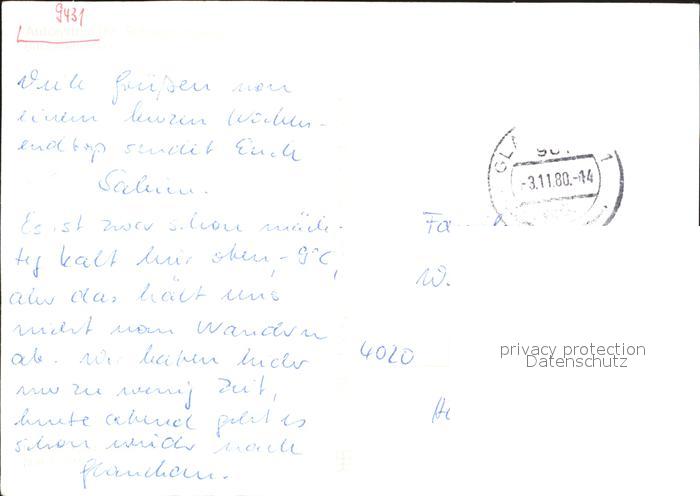 9431
Viele Grüßen von
einem kurzen Wochen-
endtrip sendet Euch
Sabine.
Es ist zwar schon mäch-
tig kalt hier oben, -9°C,
aber das hält uns
nicht vom Wandern
ab. Wir haben leider
nur zu wenig Zeit,
heute abend geht es
schon wieder nach
Glauchau.
GL
-3.11.80.-14
Fa
W.
4020
privacy protection
Datenschutz